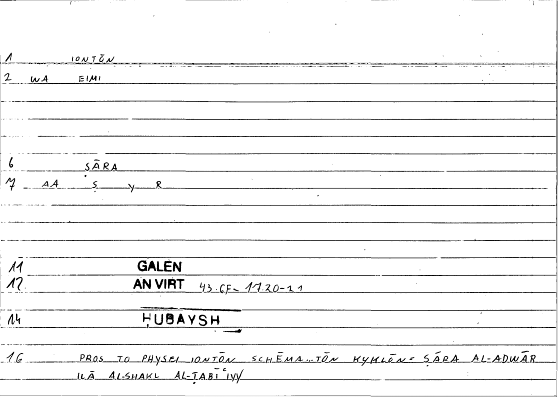 1 IONTŌN
2 WA EIMI
6 ṢĀRA
7 AA Ṣ y R
11 GALEN
12 AN VIRT 43.CF- 1720-21
14 ḤUBAYSH
16 PROS TO PHYSEI IONTŌN SCHĒMA...TŌN KYKLŌN = ṢĀRA AL-ADWĀR
ILĀ AL-SHAKL AL-ṬABĪʿIYY